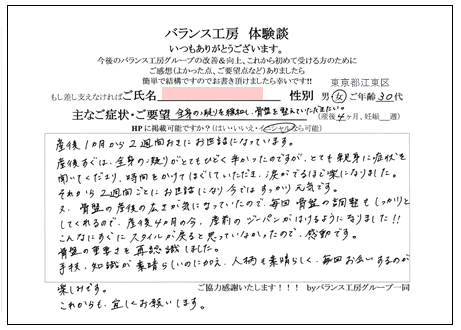 バランス工房 体験談
いつもありがとうございます。
今後のバランス工房グループの改善&向上、これから初めて受ける方のために
ご感想(よかった点、ご要望点など)ありましたら
簡単で結構ですのでお書き頂けましたら幸いです!!
東京都江東区
もし差し支えなければご氏名 性別 男・女 ご年齢30代
主なご症状・ご要望 全身の凝りを緩和し、骨盤を整えていただきたい。(産後4ヶ月、妊娠 週)
HPに掲載可能ですか?(はい・いいえ・イニシャルなら可能)
産後1カ月から2週間おきにお世話になっています。
産後すぐは、全身の凝りがとてもひどく辛かったのですが、とても親身に症状を
聞いてくださり、時間をかけてほぐしていただき、涙がでるほど楽になりました。
それから2週間ごとにお世話になり今ではすっかり元気です。
又、骨盤の産後の広さが気になっていたので、毎回骨盤の調整もしっかりと
してくれるので、産後4カ月の今、産前のジーパンがはけるようになりました!!
こんなにすぐにスタイルが戻ると思っていなかったので、感動です。
骨盤の重要さを再認識しました。
手技、知識が素晴らしいのに加え、人柄も素晴らしく、毎回お会いするのが
楽しみです。
ご協力感謝いたします!!! byバランス工房グループ一同
これからも、宜しくお願いします。